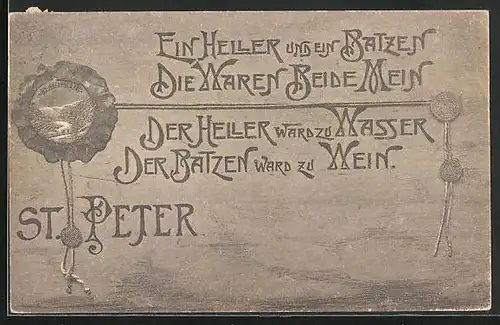 EIN HELLER UND EIN BATZEN
DIE WAREN BEIDE MEIN
DER HELLER WARD ZU WASSER
DER BATZEN WARD ZU WEIN.
ST. PETER.